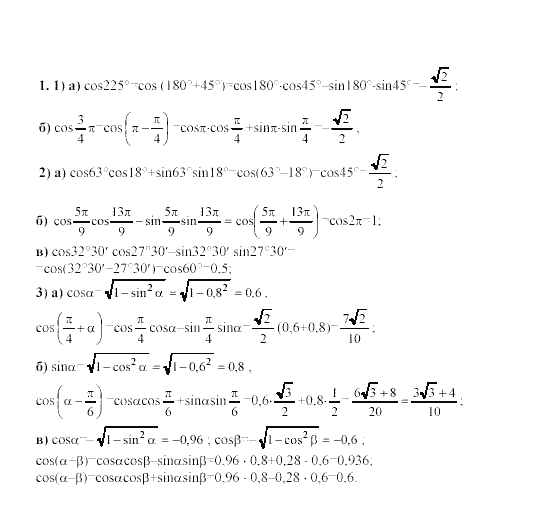 1. 1) а) cos225°=cos (180°+45°)=cos180°·cos45°–sin180°·sin45°=–√2/2 ;
б) cos 3/4 π=cos(π–π/4) =cosπ·cos π/4 +sinπ·sin π/4 =–√2/2 ,
2) а) cos63°cos18°+sin63°sin18°=cos(63°–18°)=cos45°=√2/2 ;
б) cos 5π/9 cos 13π/9 – sin 5π/9 sin 13π/9 = cos(5π/9 + 13π/9) =cos2π=1;
в) cos32°30′ cos27°30′–sin32°30′ sin27°30′=
=cos(32°30′–27°30′)=cos60°=0,5;
3) а) cosα=√(1–sin² α) = √(1–0,8²) = 0,6 ,
cos(π/4+α) =cos π/4 cosα–sin π/4 sinα=√2/2 (0,6+0,8)=7√2/10 ;
б) sinα=√(1–cos² α) = √(1–0,6²) = 0,8 ,
cos(α–π/6) =cosαcos π/6 +sinαsin π/6 =0,6·√3/2 +0,8·1/2 =(6√3+8)/20 = (3√3+4)/10 ;
в) cosα=–√(1–sin² α) = –0,96 ; cosβ=–√(1–cos² β) = –0,6 ,
cos(α–β)=cosαcosβ–sinαsinβ=0,96 · 0,8+0,28 · 0,6=0,936;
cos(α–β)=cosαcosβ+sinαsinβ=0,96 · 0,8–0,28 · 0,6=0,6.